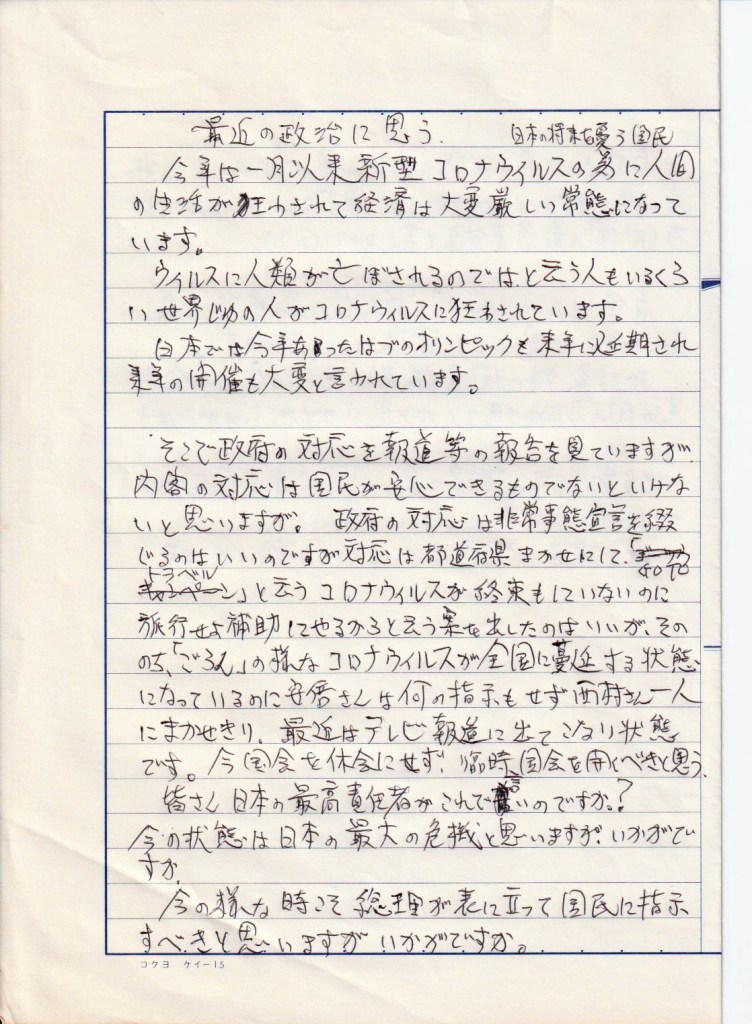 最近の政治に思う. 日本の将来を憂う国民
今年は一月以来新型コロナウイルスの為に人間
の生活が狂わされて経済は大変厳しい常態になって
います。
ウィルスに人類が亡ぼされるのでは、と云う人もいるくら
い世界じゅの人がコロナウィルスに狂わされています。
日本では今年あったはづのオリンピックも来年に延期され
来年の開催も大変と言われています。
そこで政府の対応を報道等の報告を見ていますが
内客の対応は国民が安心できるものでないといけな
いと思いますが。 政府の対応は非常事態宣言を綴
じるのはいいのですが対応は都道府県まかせにして、「
go to
トラベル
」と云うコロナウィルスが終束もしていないのに
旅行せよ補助してやるからと云う案を出したのはいいが、その
のち、「ごらん」の様なコロナウィルスが全国に蔓延する状態
になっているのに安倍さんは何の指示もせず西村さん一人
にまかせきり、最近はテレビ報道に出てこない状態
です。今国会を休会にせず、臨時国会を開くべきと思う.
皆さん日本の最高責任者がこれで言いのですか。?
今の状態は日本の最大の危機と思いますが、いかがで
すか.
今の様な時こそ総理が表に立って国民に指示
すべきと思いますがいかがですか。
コクヨ ケイー15